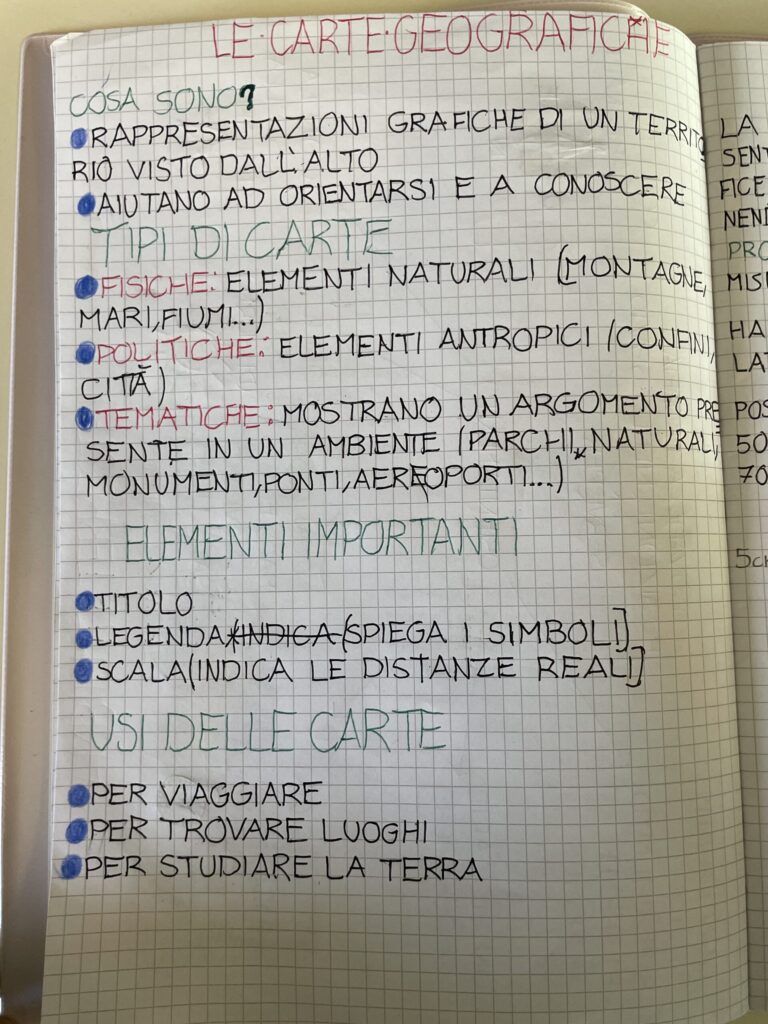 LE·CARTE·GEOGRAFICHE
COSA SONO?
RAPPRESENTAZIONI GRAFICHE DI UN TERRITO
RIO VISTO DALL'ALTO
AIUTANO AD ORIENTARSI E A CONOSCERE
TIPI DI CARTE
FISICHE: ELEMENTI NATURALI (MONTAGNE,
MARI,FIUMI...)
POLITICHE: ELEMENTI ANTROPICI (CONFINI,
CITTÀ)
TEMATICHE: MOSTRANO UN ARGOMENTO PRE
SENTE IN UN AMBIENTE (PARCHI NATURALI,
MONUMENTI,PONTI,AEREOPORTI...)
ELEMENTI IMPORTANTI
TITOLO
LEGENDA (INDICA (SPIEGA I SIMBOLI)
SCALA(INDICA LE DISTANZE REALI)
USI DELLE CARTE
PER VIAGGIARE
PER TROVARE LUOGHI
PER STUDIARE LA TERRA
LA
SENT
FICE
NEND
PRO
MISU
HA
LAT
POS
50
70
5ch